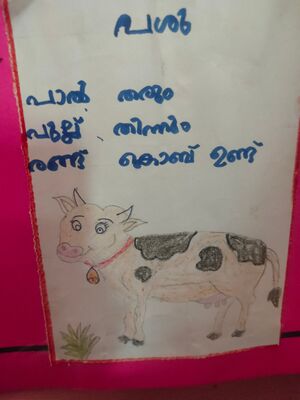 പശു
പാൽ തരും
പുല്ല് തിന്നും
രണ്ട് കൊമ്പ് ഉണ്ട്